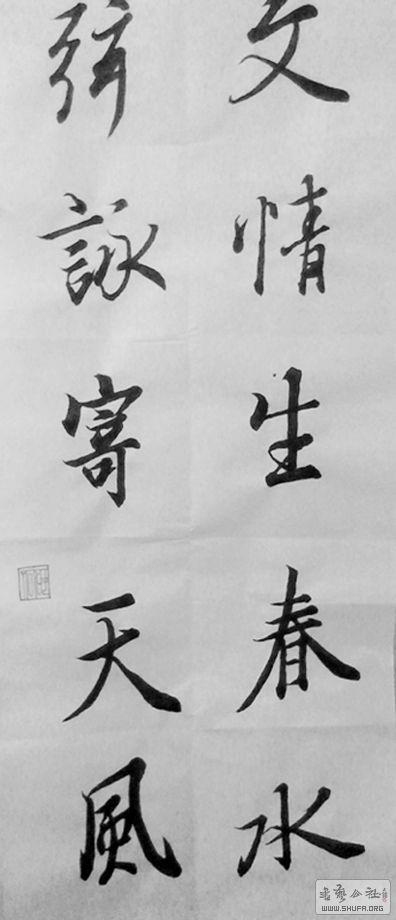 文情生春水
弦詠寄天風
書藝公社
WWW.SHUFA.ORG